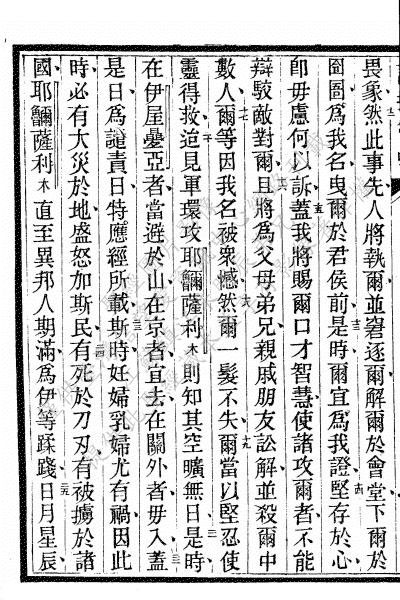 畏象然此事先人將執爾並窘逐爾解爾於會堂下爾於
囹圄為我名曳爾於君侯前是時爾宜為我證堅存於心
卽毋慮何以訴蓋我將賜爾口才智慧使諸攻爾者不能
辯駁敵對爾且將為父母弟兄親戚朋友訟解並殺爾中
數人爾等因我名被衆憾然爾一髮不失爾當以堅忍使
靈得救迨見軍環攻耶𮎰薩利木則知其空曠無日是時
在伊屋疊亞者當避於山在京者宜去在關外者毋入蓋
是日為譴責日特應經所載斯時妊婦乳婦尤有禍因此
時必有大災於地盛怒加斯民有死於刀刃有被擄於諸
國耶𮎰薩利木直至異邦人期滿為伊等蹂踐日月星辰